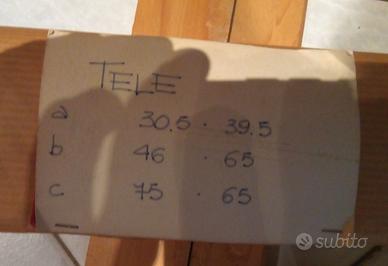 TELE
a 30.5 · 39.5
b 46 · 65
c 75 · 65
subito